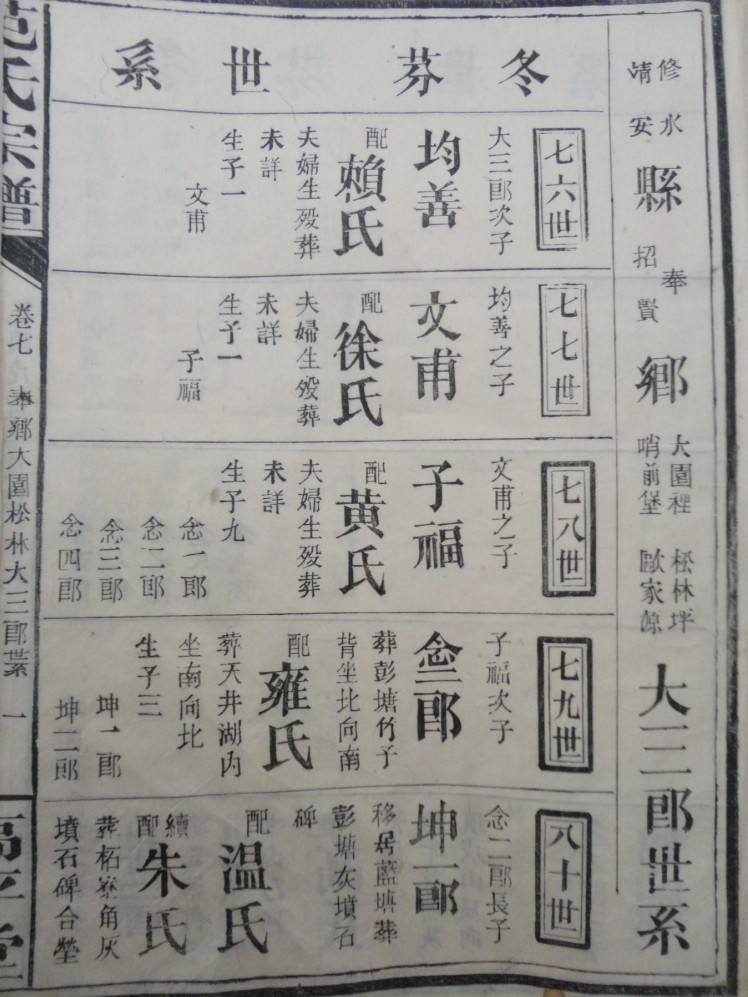 修水
靖安
縣
奉
招賢
鄉
大園裡 松林坪
哨前堡 歐家源
大三郎世系
冬芬世系
七六世
大三郎次子
均善
配
賴氏
夫婦生殁葬
未詳
生子一
文甫
七七世
均善之子
文甫
配
徐氏
夫婦生殁葬
未詳
生子一
子福
七八世
文甫之子
子福
配
黄氏
夫婦生殁葬
未詳
生子九
念一郎
念二郎
念三郎
念四郎
七九世
子福次子
念二郎
葬彭塘竹子
背坐北向南
配
雍氏
葬天井湖内
坐南向北
生子三
坤一郎
坤二郎
八十世
念二郎長子
坤一郎
移居藍塘葬
彭塘灰墳石
碑
配
温氏
續配
朱氏
葬柘寮角灰
墳石碑合塋
范氏宗譜
卷七
奉鄉大園松林大三郎世系
一
高平堂